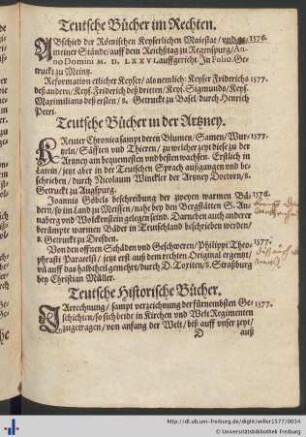 Teutsche Bücher im Rechten.
ABschied der Römischen Keyserlichen Maiestat / 1576.
meiner Stände / auff dem Reichßtag zu Regenspurg / An-
no Domini M. D. LXXVI. auffgericht. In Folio. Ge-
truckt zu Meintz.
Reformation etlicher Keyser / als nemlich: Keyser Friderichs 1577.
deß andern / Keys. Friderich deß dritten / Keys. Sigmunds / Keys.
Maximilians deß ersten / ꝛc. Getruckt zu Basel / durch Henrich
Petri.
Teutsche Bücher in der Artzney.
KReuter Chronica sampt deren Blumen / Samen / Wur- 1577.
tzeln / Säfften vnd Thieren / zu welcher zeyt diese zu der
Artzney am bequemesten vnd besten wachsen. Erstlich in
Latein / jetzt aber in der Teutschen Sprach außgangen vnd be-
schrieben / durch Nicolaum Winckler der Artzney Doctorn / ꝛc.
Getruckt zu Augspurg.
Joannis Göbels beschreibung der zweyen warmen Bä- 1576.
dern / so im Land zu Meissen / nahe bey den Bergstätten S. An-
naberg vnd Wolckenstein gelegen seind. Darneben auch anderer
berümpte warmen Bäder in Teutschland beschrieben werden /
ꝛc. Getruckt zu Dreßden.
Von den offnen Schäden vnd Geschweren / Philippi Theo- 1577.
phrasti Paracelsi / jetzt erst auß dem rechten Original ergentzt /
vñ auff das halbe theil gemehrt / durch D. Toxiten / ꝛc. Straßburg
bey Christian Müller.
Teutsche Historische Bücher.
JArrechnung / sampt verzeichnung der fürnembsten Ge- 1577.
schichten / so sich beide in Kirchen vnd Welt Regimenten
zugetragen / von anfang der Welt / biß auff vnser zeyt /
D auß
http://dl.ub.uni-freiburg.de/diglit/willer1577/0034
Universitätsbibliothek Freiburg